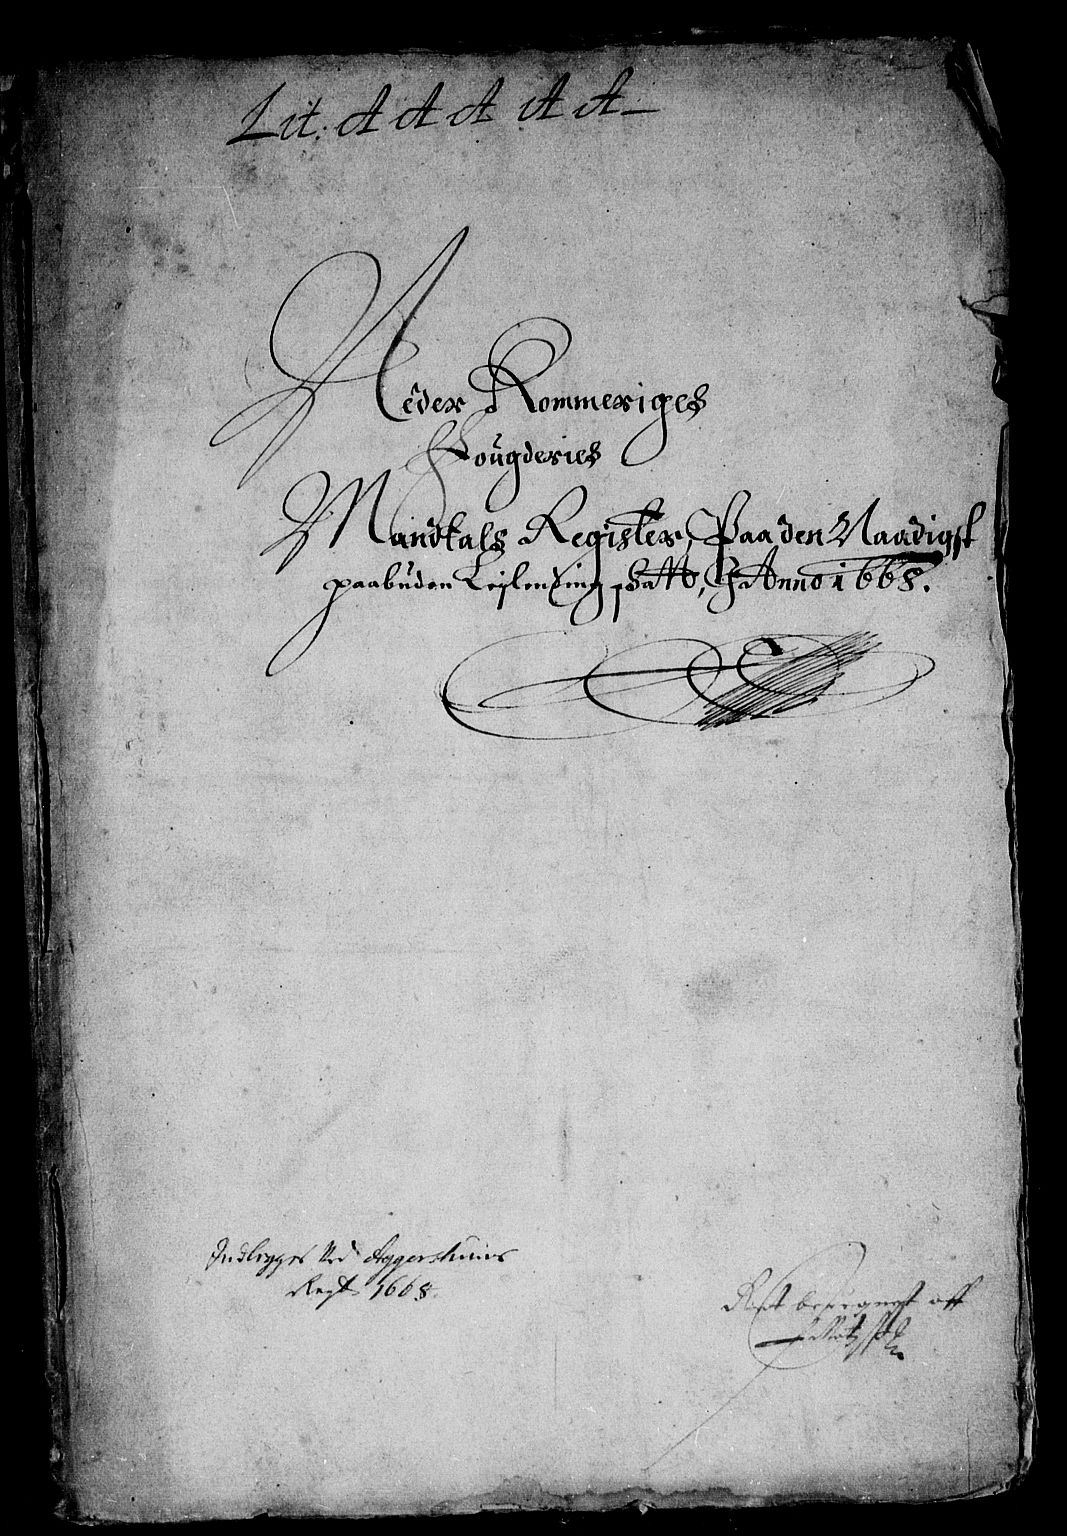 Lit. A A A A A
Neder Rommeriges
Fougderies
Mandtals Register, Paa den Naadigst
paabuden Leylending Schatt, Pa Anno 1668.
Indligges Ved Aggershuus
Regt 1668.
Rest besuegnest aff